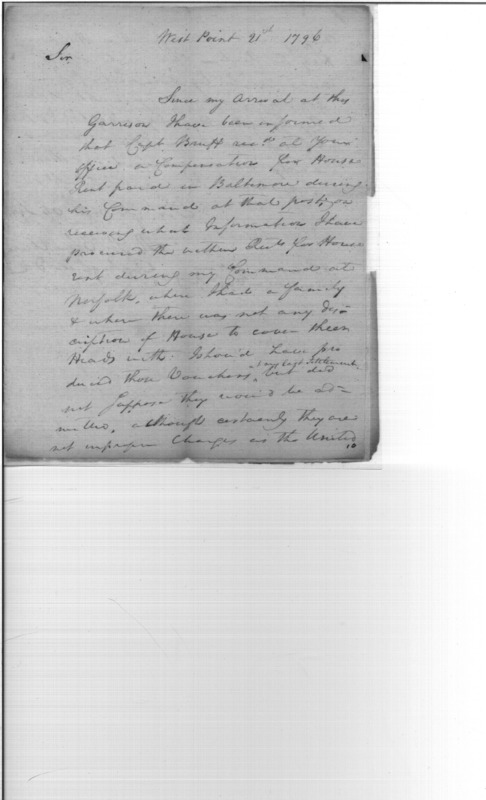 West Point 21st 1796
Sir
Since my Arrival at this
Garrison I have been informed
that Capt Bruff recd at your
office a Compensation for House
Rent paid in Baltimore during
his Command at that post, on
receiving what Information I have
procured the within Rects for House
rent during my Command at
Norfolk, where I had a family
& where there was not any dis=
cription of House to cover their
Heads with: I shou'd have pro
duced those Vouchers at my last Settlement, but did
not Suppose they wou'd be ad=
mitted, although certainly they are
not improper Charges as the United